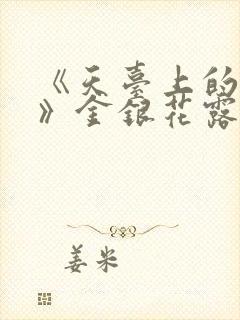 《天臺上的
》金銀花露
姜米